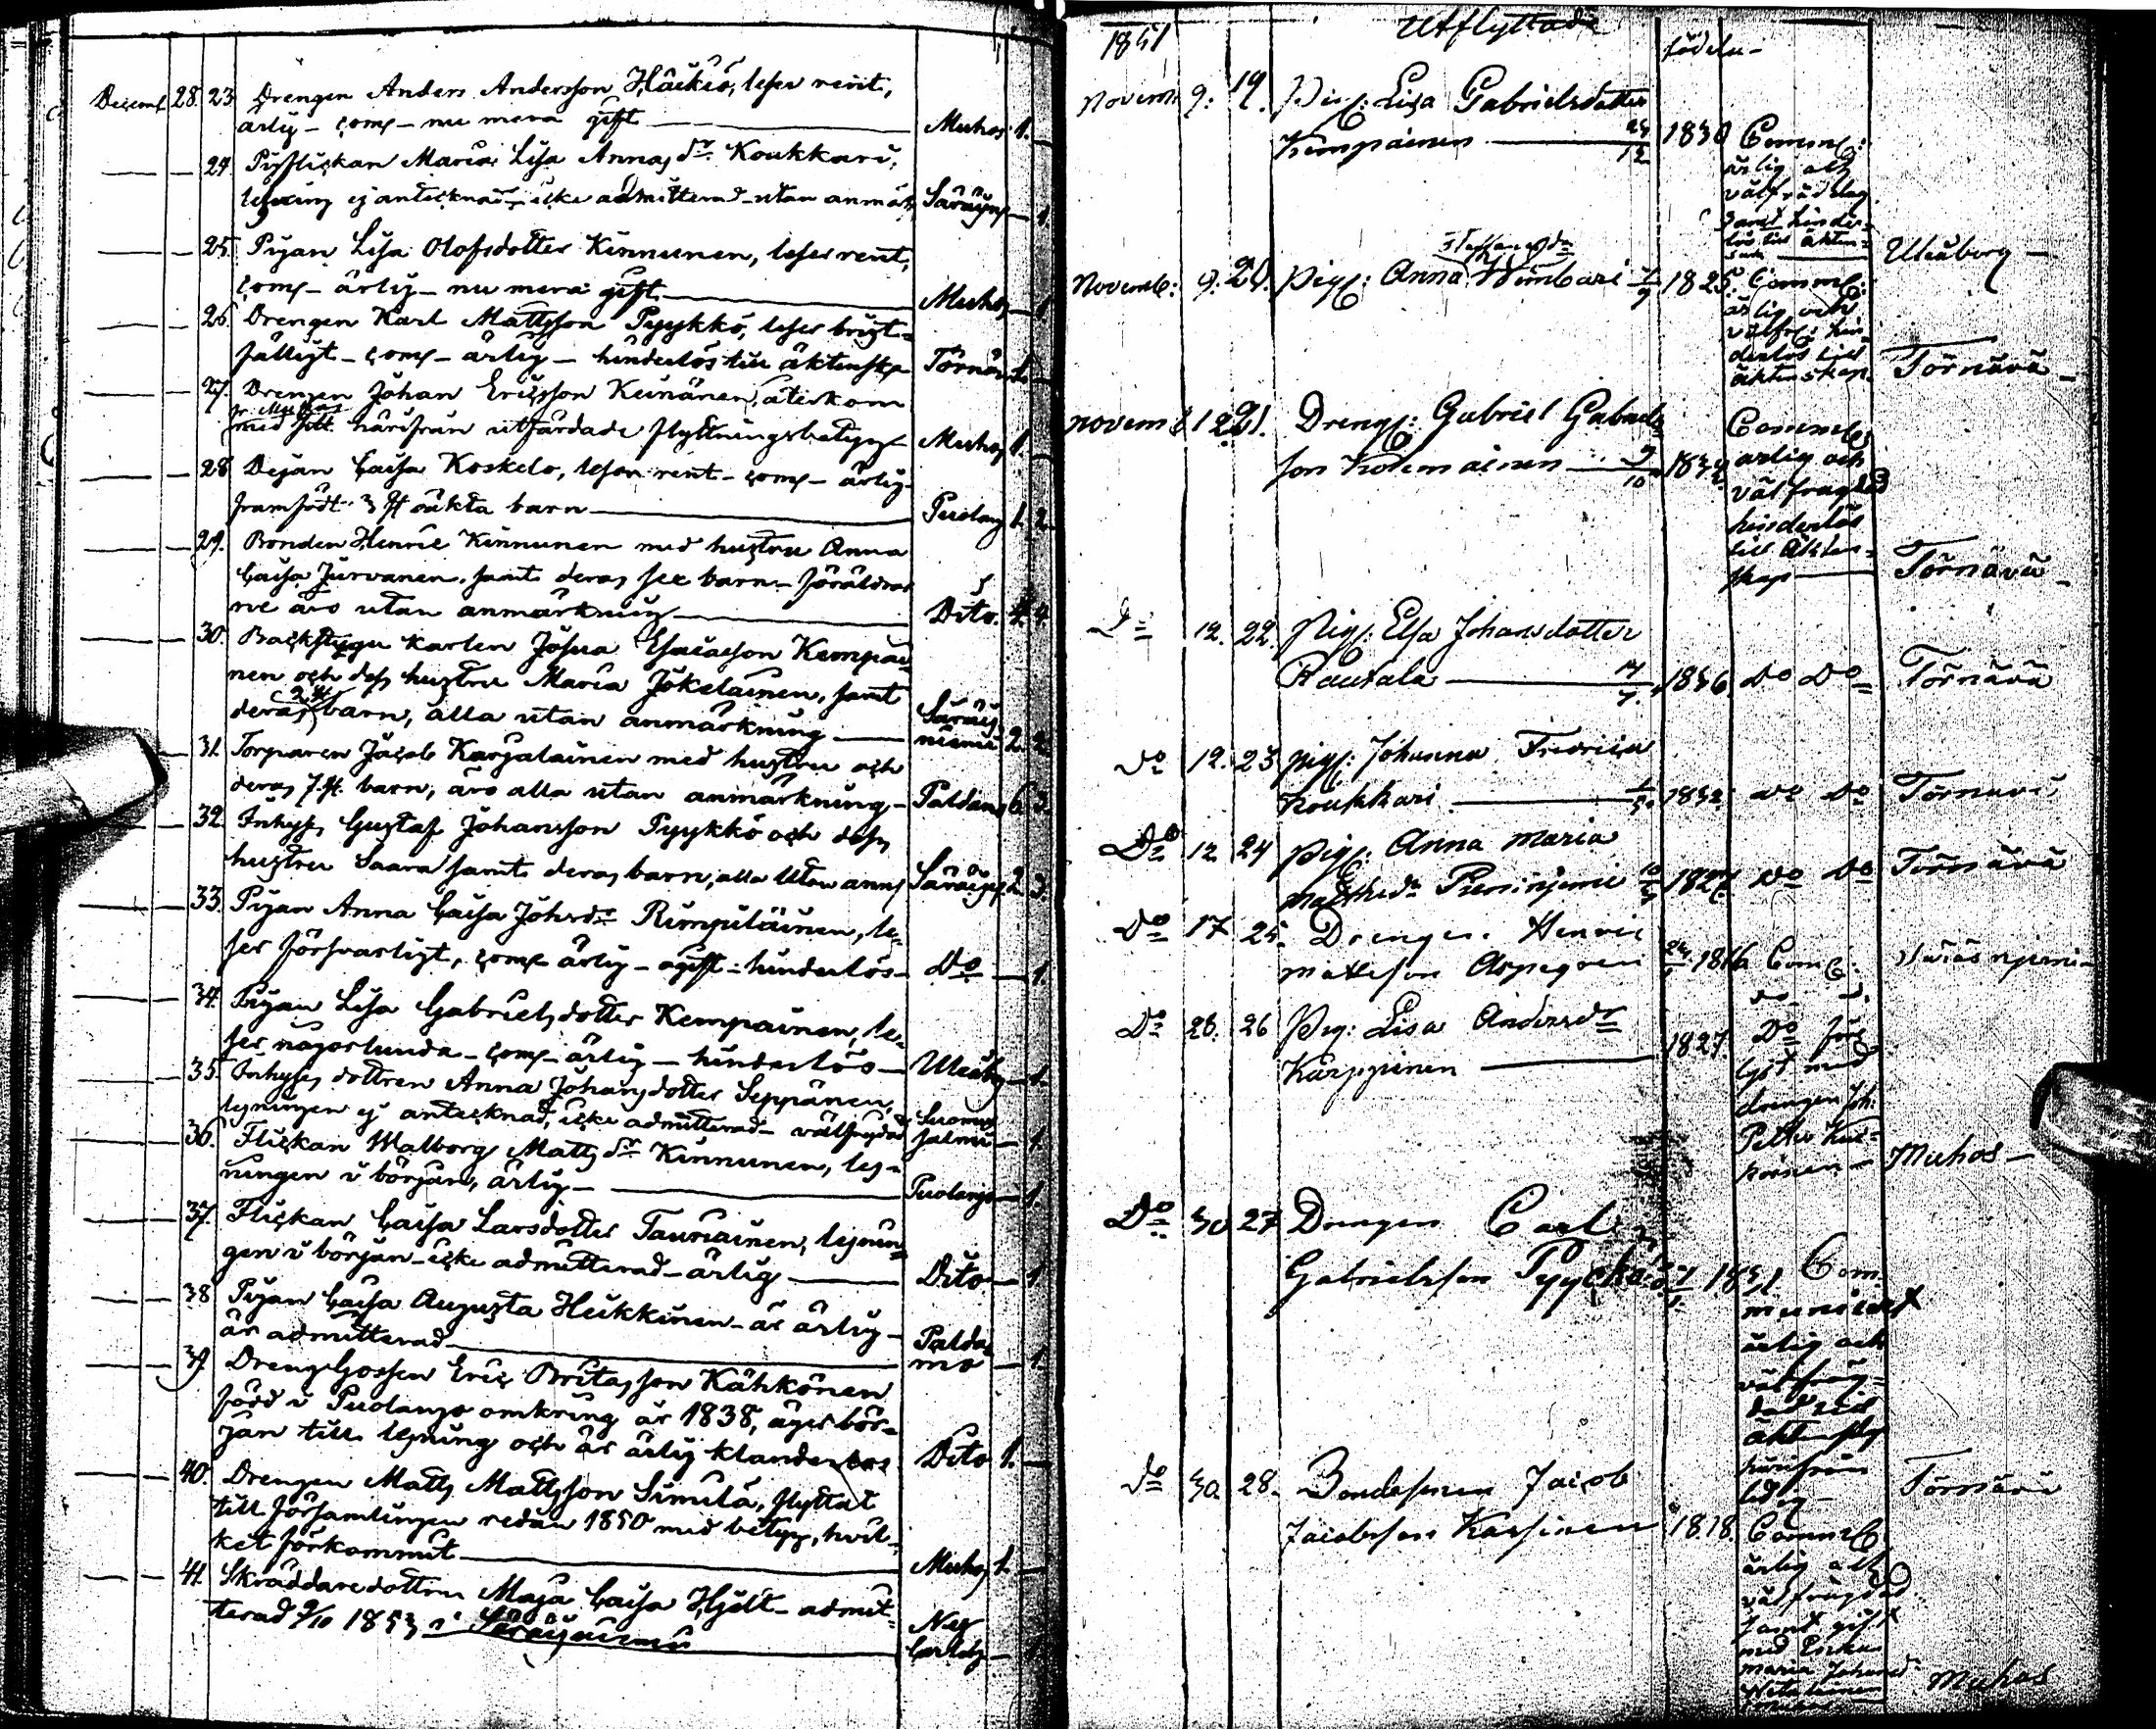 Decemb 28. 23. Drengen Anders Andersson Häikiö, läser rent,
ärlig – com – nu mera gift — Muhos 1. —
24. Pigflickan Maria Lisa Annas dr. Koukkari,
läsning ej antecknad – icke admitterad – utan anmärk Säräisn — 1
25. Pigan Lisa Olofsdotter Kinnunen, läser rent,
com – ärlig – nu mera gift — Muhos — 1
26. Drengen Karl Mattsson Pyykkö, läser brist-
fälligt – com – ärlig – hinderlös till äktenska Törnäv 1. —
27. Drengen Johan Ericsson Keinänen, återkom
fr. Muhos
med sitt härifrån utfärdade flyttningsbetyg Muhos 1. —
28. Pigan Caisa Koskelo, läser rent – com – ärlig
framfödt 3 st oäkta barn — Puolang 1. 2.
29. Bonden Henric Kinnunen med hustru Anna
Caisa Jurvanen, samt deras sex barn – föräldrar
ne äro utan anmärkning — Dito. 4. 4.
30. Backstugu karlen Josua Esaiasson Kempai
nen och dess hustru Maria Jokelainen, samt
2 st
deras barn, alla utan anmärkning — Säräis
niemi 2. 2.
31. Torparen Jacob Karjalainen med hustru och
deras 7. st. barn, äro alla utan anmärkning – Paldamo 6 3.
32. Inhys Gustaf Johansson Pyykkö och dess
hustru Saara samt deras barn, alla utan anm Säräisn 2. 3.
33. Pigan Anna Caisa Johsdr Rimpiläinen, lä-
ser försvarligt, com ärlig – ogift – hinderlös – Do — 1.
34. Pigan Lisa Gabrielsdotter Kempainen, lä-
ser någorlunda – com – ärlig – hinderlös – Uleåbg — 1.
35. Inhyses dottren Anna Johansdotter Seppänen,
läsningen ej antecknad, icke admitterad – välfrejdad Suomus
salmi — 1.
36. Flickan Walborg Matts dr Kinnunen, läs-
ningen i början, ärlig — Puolango — 1.
37. Flickan Caisa Larsdotter Tauriainen, läsnin
gen i början – icke admitterad – ärlig — Dito — 1.
38. Pigan Caisa Augusta Heikkinen – är ärlig –
är admitterad — Palda
mo — 1.
39. Dreng Gossen Eric Britas son Kähkönen
född i Puolango omkring år 1838, äger bör-
jan till läsning och är ärlig klanderlös Dito 1. —
40. Drengen Matts Mattsson Similä, flyttat
till församlingen redan 1850 med betyg, hvil-
ket förkommit — Muhos 1. —
41. Skräddaredottren Maja Caisa Hjelt – admit-
terad 9/10 1853 i Säräisniemi Ny
Carleby — 1
1851 Utflyttade födelse-
Novemb 9. 19. Pig: Lisa Gabrielsdotter
Kempainen 24/12 1830 Comm:
ärlig och
välfräjdad
samt hinder-
lös till äkten-
skap Uleåborg –
Staffansdr
Novemb: 9. 20. Pig: Anna Wimbari 7/9 1825. Comm:
ärlig och
välfrej: hin
derlös till
äktenskap Törnävä –
Novemb 12 21. Dreng: Gabriel Gabriels
son Kolemainen 9/10 1832 Comm:
ärlig och
välfragdad
hinderlös
till Äkten-
skap — Törnävä –
Do 12. 22. Pig: Elsa Johansdotter
Rautala 14/7. 1836 do do Törnävä
Do 12. 23 pig: Johanna Fredrica
Koukkari 1832 do do Törnävä
Do 12 24 pig: Anna Maria
Matthsdr 1827. do do Törnävä
Do 17 25. Drengen Henric
Mattsson Aspegren 1816 Com: Säräsnjemi
Do 26. 26 Pig: Lisa Andersdr
Karppinen — 1827. Do för
lyst med
drengen Joh:
Petter Kui-
Muhos –
Do 30 27 Drengen Carl
Gabrielsson Pyyckö 1831 Com
municerat
ärlig och
välfräg-
dad till
äktenskap
härifrån
ledig Törnävä
Do 30. 28. Bondesonen Jacob
Jacobsson Karsinen 1818. Comm:
ärlig och
välfrägdad
samt gift
med
Maria Johansd Muhos